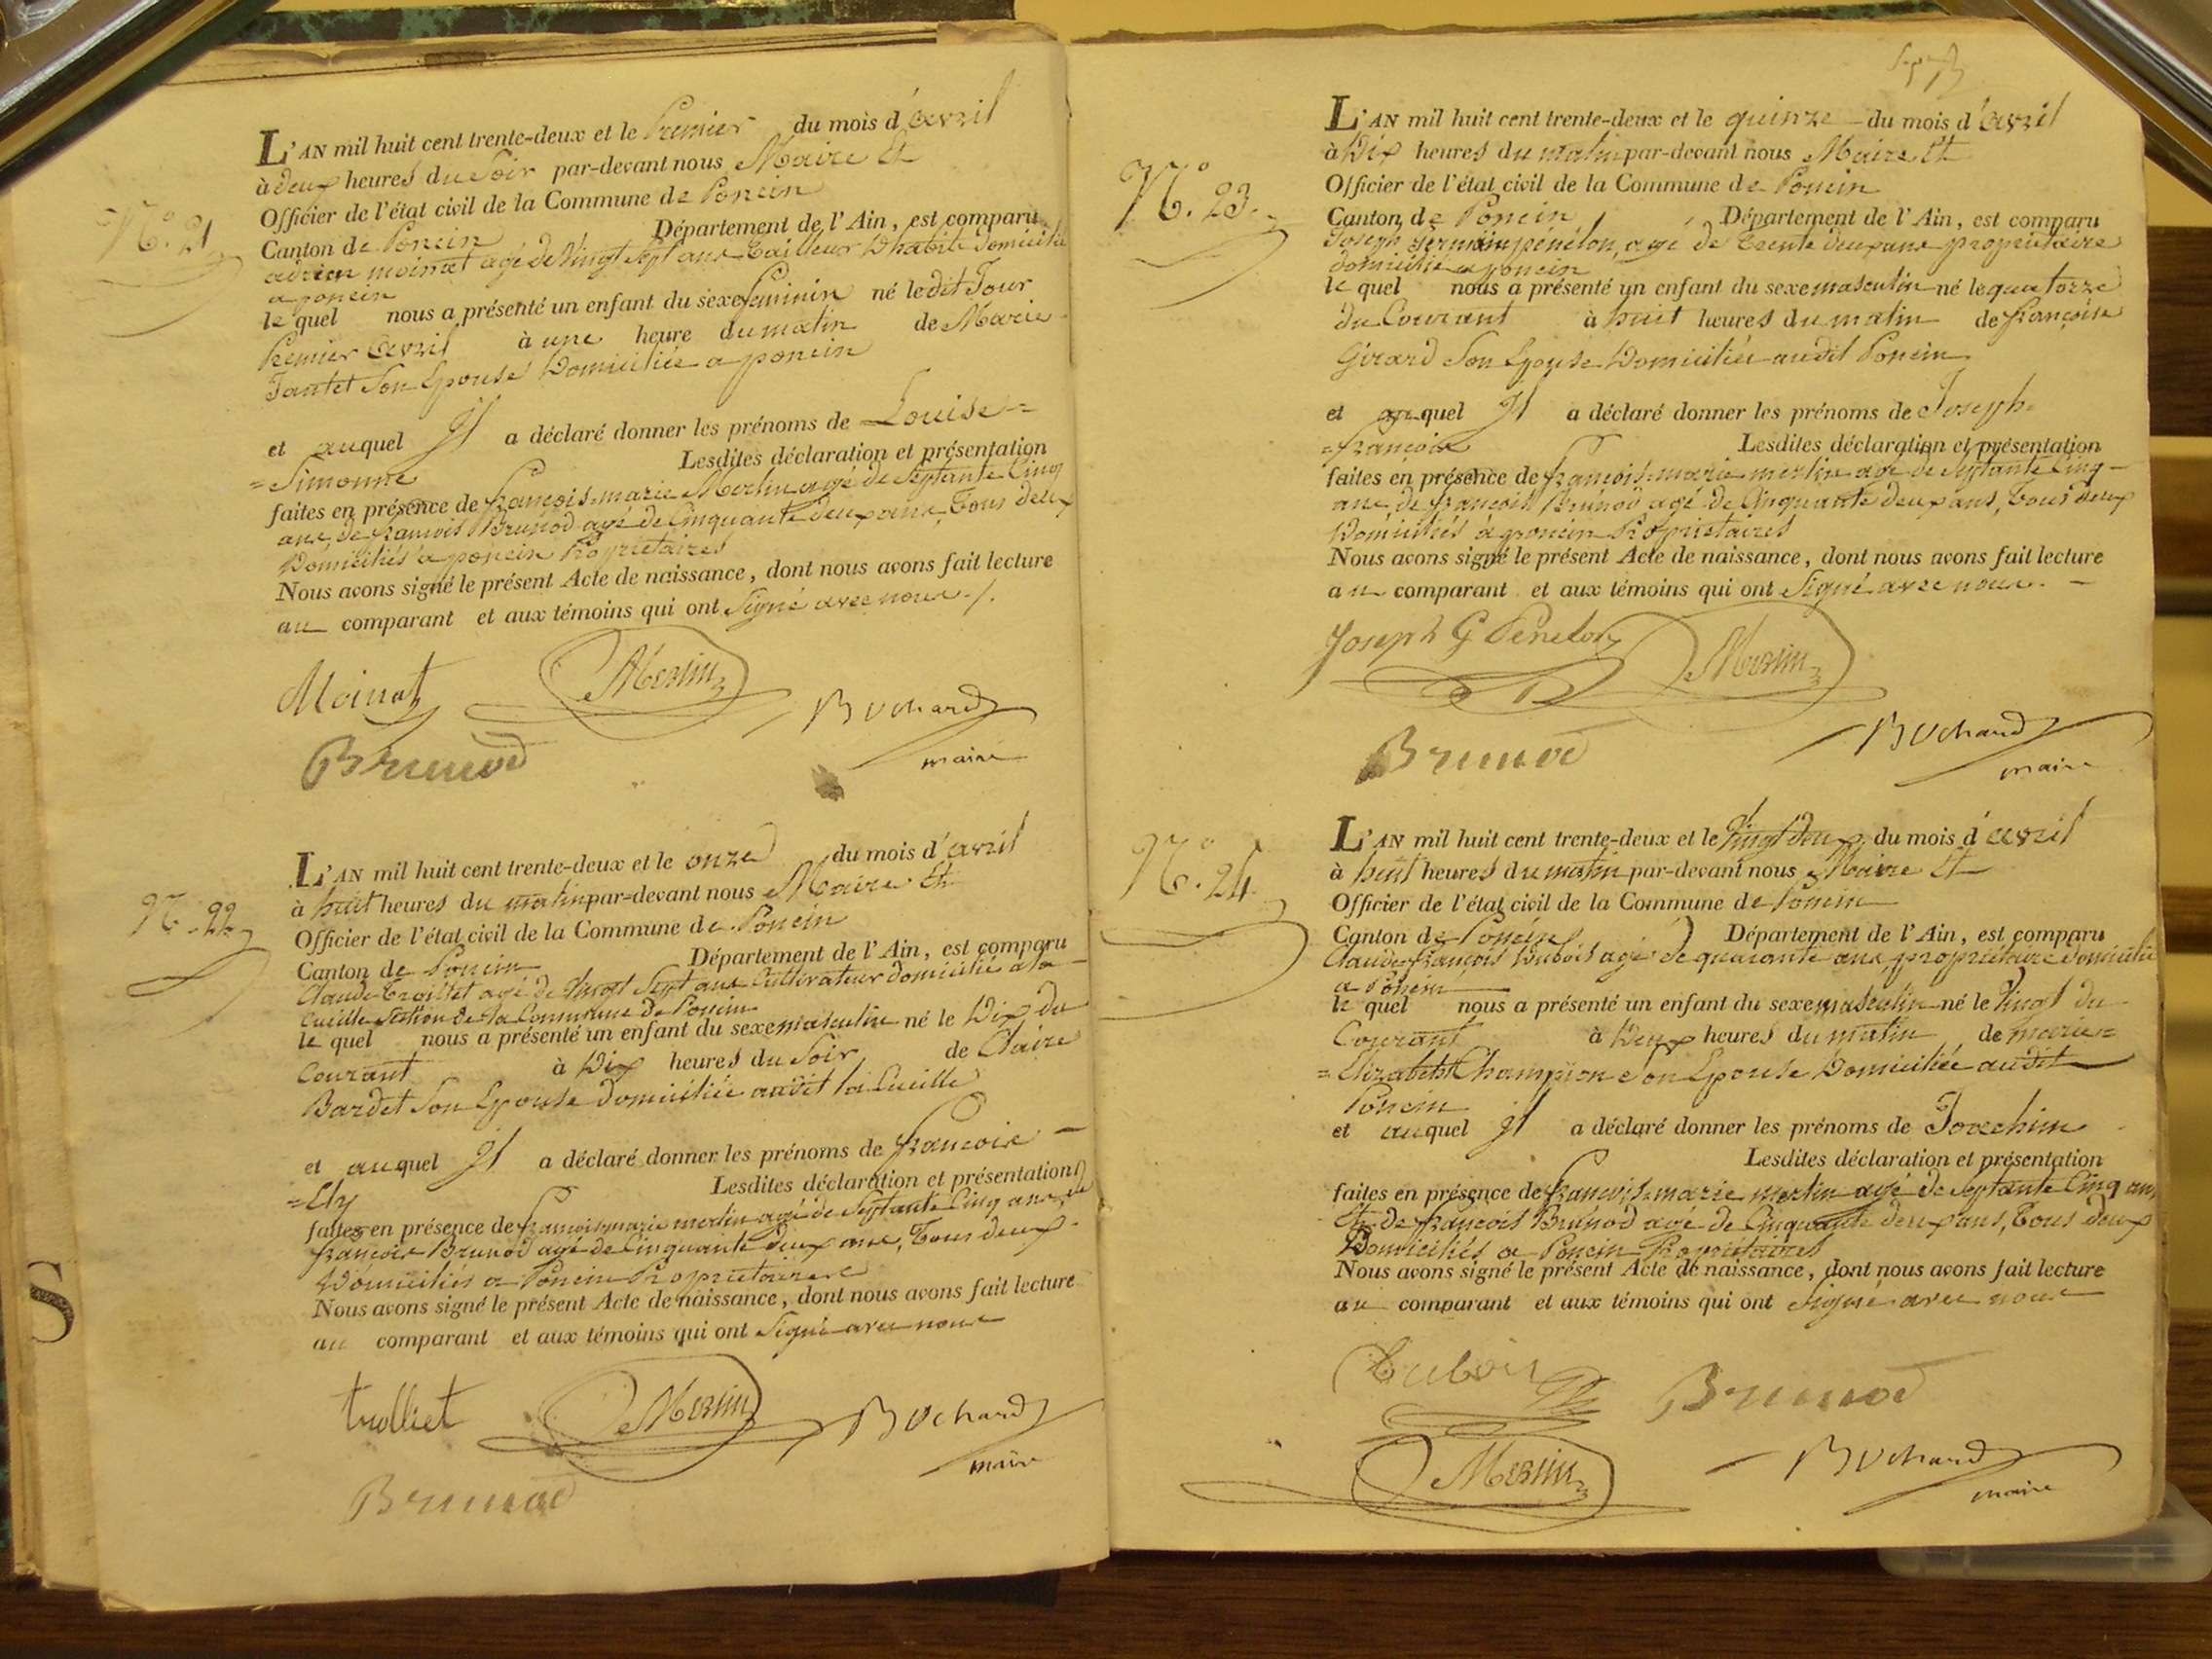 N.° 21
L'AN mil huit cent trente-deux et le Premier du mois d'avril
à deux heures du Soir par-devant nous Maire Et
Officier de l'état civil de la Commune de Poncin
Canton de Poncin Département de l'Ain, est comparu
adrien moinat agé de Vingt Sept ans Tailleur D'habits Domicilié
a poncin
le quel nous a présenté un enfant du sexe feminin né ledit Jour
Premier avril à une heure du matin de Marie
Tantet Son Epouse Domiciliée a poncin
et auquel Il a déclaré donner les prénoms de Louise=
=Simonne Lesdites déclaration et présentation
faites en présence de françois=marie Merlin agé de Septante Cinq
ans, de francois Brunod agé de Cinquante deux ans, Tous deux
Domiciliés a poncin Propriétaires
Nous avons signé le présent Acte de naissance, dont nous avons fait lecture
au comparant et aux témoins qui ont Signé avec nous ./.
Moinat Merlin
Bochard
Brunod maire
N.° 22
L'AN mil huit cent trente-deux et le onze du mois d'avril
à huit heures du matin par-devant nous Maire Et
Officier de l'état civil de la Commune de Poncin
Canton de Poncin Département de l'Ain, est comparu
Claude Trolliet agé de Vingt Sept ans Cultivateur domicilié a la
Cueille Section de la Commune de Poncin
le quel nous a présenté un enfant du sexe masculin né le Dix du
Courant à Dix heures du Soir de Claire
Bardet Son Epouse domiciliée audit la Cueille
et auquel Il a déclaré donner les prénoms de francois
=Ely Lesdites déclaration et présentation
faites en présence de francois marie merlin agé de Septante Cinq ans, de
francois Brunod agé de Cinquante deux ans, Tous deux
Domiciliés a Poncin Propriétaires
Nous avons signé le présent Acte de naissance, dont nous avons fait lecture
au comparant et aux témoins qui ont Signé avec nous
trolliet Merlin Bochard
maire
Brunod
N.° 23.
L'AN mil huit cent trente-deux et le quinze du mois d'avril
à Dix heures du matin par-devant nous Maire Et
Officier de l'état civil de la Commune de Poncin
Canton de Poncin Département de l'Ain, est comparu
Joseph germain pénélon, agé de Trente deux ans propriétaire
domicilié a poncin
le quel nous a présenté un enfant du sexe masculin né le quatorze
du Courant à huit heures du matin de françoise
Girard Son Epouse Domiciliée audit Poncin
et auquel Il a déclaré donner les prénoms de Joseph=
=francois Lesdites déclaration et présentation
faites en présence de françois=marie merlin agé de Septante Cinq
ans, de francois Brunod agé de Cinquante deux ans, Tous deux
Domiciliés a poncin Propriétaires
Nous avons signé le présent Acte de naissance, dont nous avons fait lecture
au comparant et aux témoins qui ont Signé avec nous.
Joseph G Penelon Merlin
Bochard
Brunod maire
N.° 24.
L'AN mil huit cent trente-deux et le Vingt deux du mois d'avril
à huit heures du matin par-devant nous Maire Et
Officier de l'état civil de la Commune de Poncin
Canton de Poncin Département de l'Ain, est comparu
Claude françois Dubois agé de quarante ans, propriétaire domicilié
a Poncin
le quel nous a présenté un enfant du sexe masculin né le Vingt du
Courant à Deux heures du matin de marie=
=Elizabeth Champion Son Epouse Domiciliée audit
Poncin
et auquel Il a déclaré donner les prénoms de Joachim
Lesdites déclaration et présentation
faites en présence de francois=marie merlin agé de Septante Cinq ans
Et de francois Brunod agé de Cinquante deux ans, Tous deux
Domiciliés a Poncin Propriétaires
Nous avons signé le présent Acte de naissance, dont nous avons fait lecture
au comparant et aux témoins qui ont Signé avec nous
Dubois Brunod
Merlin Bochard
maire
S